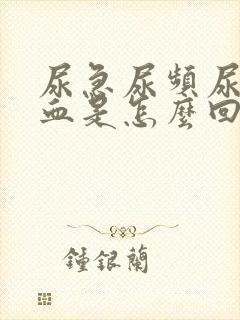 尿急尿頻尿
血是怎麼回
鍾銀蘭